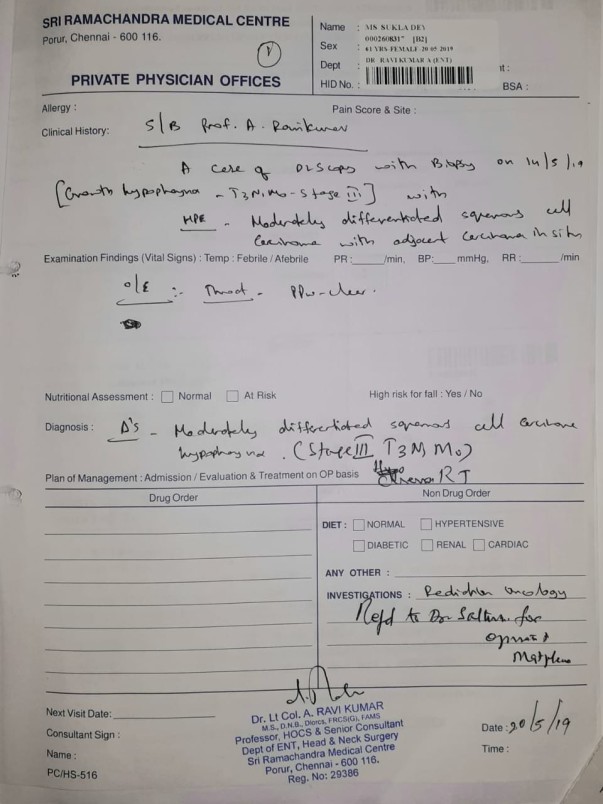 SRI RAMACHANDRA MEDICAL CENTRE
Porur, Chennai - 600 116.
PRIVATE PHYSICIAN OFFICES
Name : MS SUKLA DEY
Sex : 61 YRS FEMALE 20 05 2019
Dept : DR RAVIKUMAR A (ENT)
HID No. :
BSA :
Allergy :
Pain Score & Site :
Clinical History: S/B Prof. A. Ravikumar
A case of DLScopy with Biopsy on 14/5/19
[Growth hypopharynx - T3N1M0 - Stage III] with
HPE - Moderately differentiated squamous cell
Carcinoma with adjacent Carcinoma in situ
Examination Findings (Vital Signs) : Temp : Febrile / Afebrile PR : /min, BP: mmHg, RR : /min
O/E :- Throat - PPW - clear.
Nutritional Assessment : Normal At Risk High risk for fall : Yes / No
Diagnosis : Δ's - Moderately differentiated squamous cell carcinoma
hypopharynx. (Stage III T3 N1 M0)
Plan of Management : Admission / Evaluation & Treatment on OP basis RT
Drug Order
Non Drug Order
DIET : NORMAL HYPERTENSIVE
DIABETIC RENAL CARDIAC
ANY OTHER :
INVESTIGATIONS : Radiation oncology
Refd to Dr for
opinion &
Next Visit Date:
Consultant Sign :
Name :
PC/HS-516
Dr. Lt Col. A. RAVI KUMAR
M.S., D.N.B., Diorcs, FRCS(G), FAMS
Professor, HOCS & Senior Consultant
Dept of ENT, Head & Neck Surgery
Sri Ramachandra Medical Centre
Porur, Chennai - 600 116.
Reg. No: 29386
Date : 20/5/19
Time :